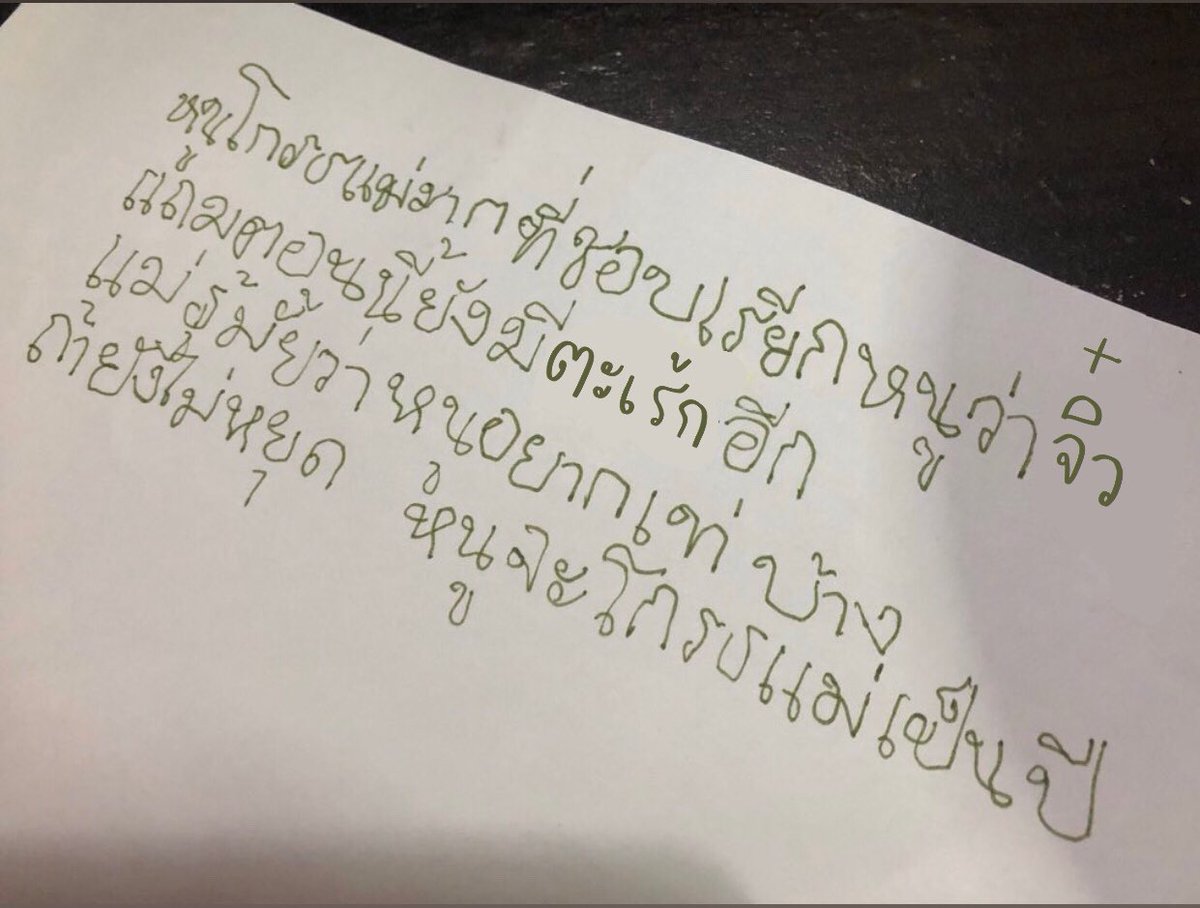 หนูโกรธแม่มากที่ชอบเรียกหนูว่าจิ๋ว
แถมตอนนี้ยังมีตะเร้กอีก
แม่รู้มั้ยว่าหนูอยากเท่บ้าง
ถ้ายังไม่หยุด หนูจะโกรธแม่เป็นปี